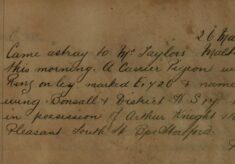 26 Ma
Came astray to Mr Taylors Malt
this morning. A Carrier Pigeon w
Ring on leg marked E 1926 & name
wing Bonsall & District H S
in possession of Arthur Knight
Pleasant South St